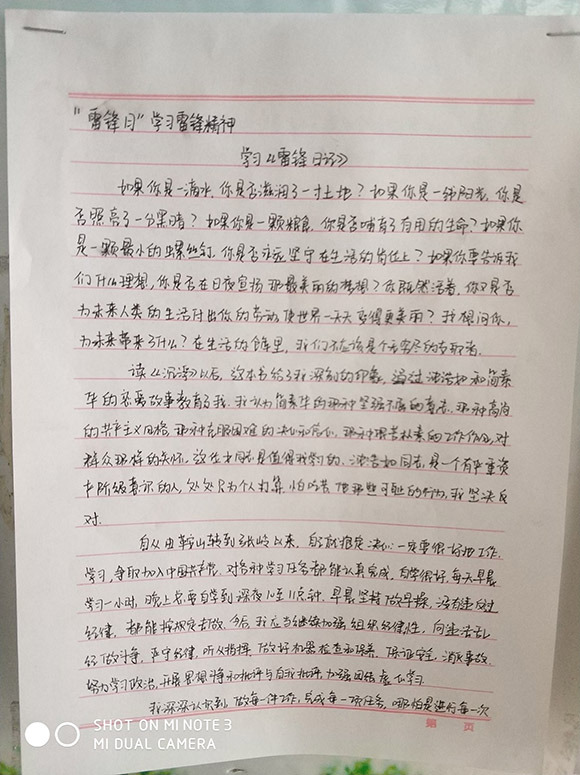 "雷锋日"学习雷锋精神
学习《雷锋日记》
如果你是一滴水，你是否滋润了一寸土地？如果你是一线阳光，你是
否照亮了一分黑暗？如果你是一颗粮食，你是否哺育了有用的生命？如果你
是一颗最小的螺丝钉，你是否永远坚守在生活的岗位上？如果你要告诉我
们什么理想，你是否在日夜宣扬那最美丽的梦想？你既然活着，你又是否
为未来人类的生活付出你的劳动，使世界一天天变得更美丽？我想问你，
为未来带来了什么？在生活的仓库里，我们不应该是个无穷尽的支取者。
读《沉浮》以后，这本书给了我深刻的印象，通过沈浩如和简素
华的恋爱故事教育了我。我认为简素华的那种坚强不屈的意志，那种高尚
的共产主义风格，那种克服困难的决心和信心，那种艰苦朴素的工作作风，对
群众那样的关怀。这位女同志是值得我学习的。沈浩如同志，是一个有严重资
产阶级意识的人，处处只为个人打算，怕吃苦，他那些可耻的行为，我坚决反
对。
自从由鞍山转到弓长岭以来，自己就抱定决心一定要很好地工作，
学习，争取加入中国共产党。对各种学习任务都能认真完成，自学很好，每天早晨
学习一小时，晚上总要自学到深夜10至11点钟，早晨坚持做早操，没有违反过
纪律，都能按规定去做，今后，我应当继续加强组织纪律性，向违法乱
纪做斗争，严守纪律，听从指挥，做好机器检查和保养，保证安全，消灭事故，
努力学习政治，开展思想斗争和批评与自我批评，加强团结，虚心学习。
我深深认识到，做每一件工作，完成每一项任务，哪怕是进行每一次
第 页
SHOT ON MI NOTE 3
MI DUAL CAMERA